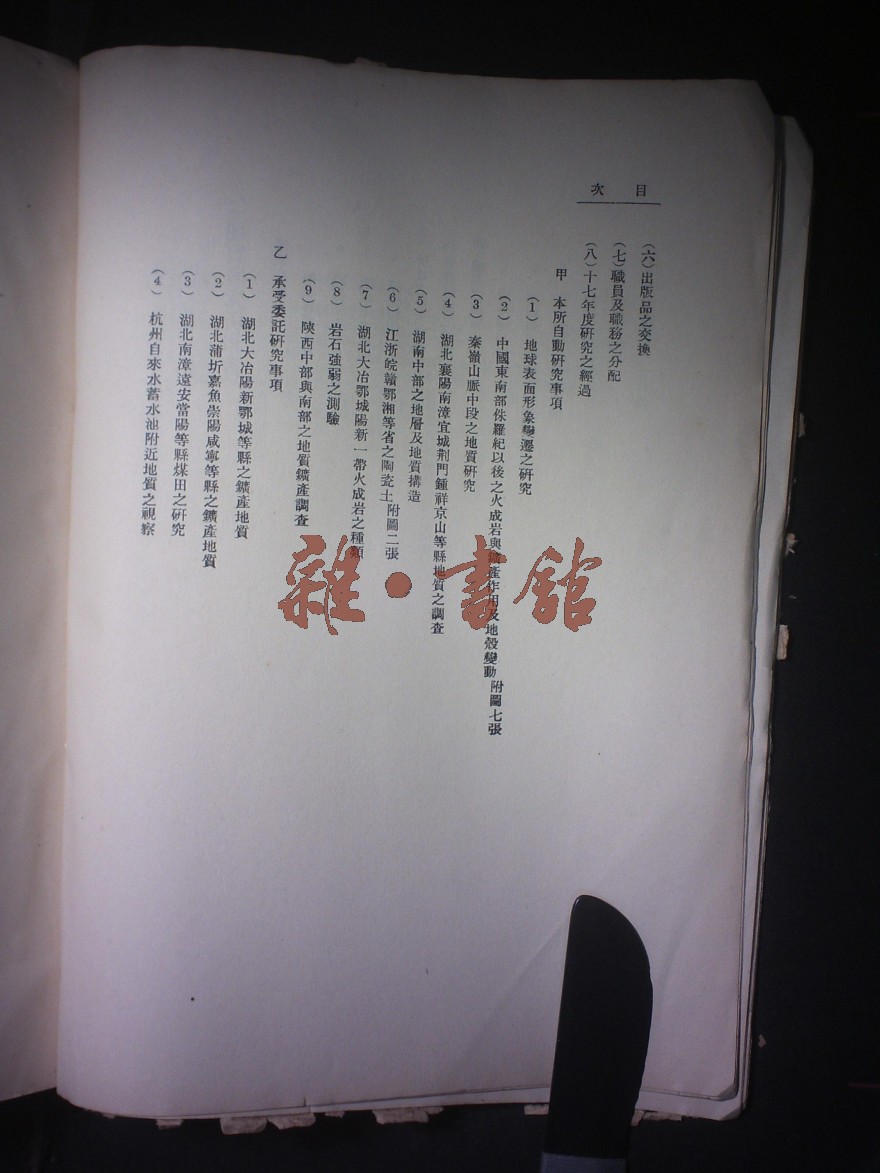 目次
(六)出版品之交換
(七)職員及職務之分配
(八)十七年度硏究之經過
甲 本所自動硏究事項
(1) 地球表面形象變遷之硏究
(2) 中國東南部侏羅紀以後之火成岩與鑛產作用及地殼變動 附圖七張
(3) 秦嶺山脈中段之地質硏究
(4) 湖北襄陽南漳宜城荆門鍾祥京山等縣地質之調査
(5) 湖南中部之地層及地質構造
(6) 江浙皖贛鄂湘等省之陶瓷土 附圖二張
(7) 湖北大冶鄂城陽新一帶火成岩之種類
(8) 岩石強弱之測驗
(9) 陝西中部與南部之地質鑛產調査
乙 承受委託硏究事項
(1) 湖北大冶陽新鄂城等縣之鑛產地質
(2) 湖北蒲圻嘉魚崇陽咸寧等縣之鑛產地質
(3) 湖北南漳遠安當陽等縣煤田之硏究
(4) 杭州自來水蓄水池附近地質之視察
雜·書館